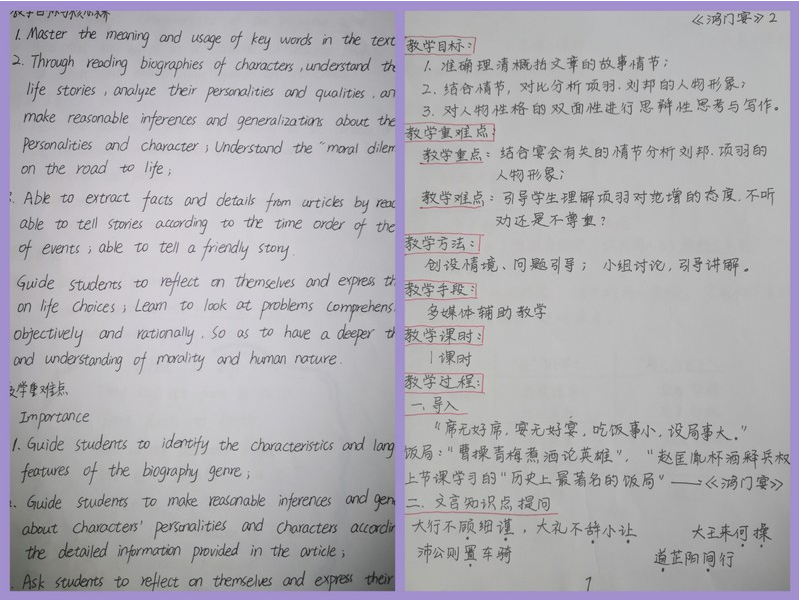 1. Master the meaning and usage of key words in the text
2. Through reading biographies of characters, understand th
life stories, analyze their personalities and qualities. an
make reasonable inferences and generalizations about the
Personalities and character; Understand the "moral dilem
on the road to life;
Able to extract facts and details from urticles by reac
able to tell stories according to the time order of the
of events; able to tell a friendly story.
Guide students to reflect on themselves and express th
on life choices; Learn to look at problems comprehens
objectively and rationally. So as to have a deeper th
and understanding of morality and human nature.
教学重难点
Importance
1. Guide students to identify the characteristics and lang
features of the biography genre;
Guide students to make reasonable inferences and gene
about characters' personalities and characters accordin
the detailed information provided in the article;
Ask students to reflect on themselves and express their
《鸿门宴》2
教学目标:
1. 准确理清概括文章的故事情节;
2. 结合情节,对比分析项羽.刘邦的人物形象;
3. 对人物性格的双面性进行思辩性思考与写作。
教学重难点:
教学重点:结合宴会有关的情节分析刘邦.项羽的
人物形象;
教学难点:引导学生理解项羽对范增的态度.不听
劝还是不尊重?
教学方法:
创设情境、问题引导; 小组讨论,引导讲解。
教学手段:
多媒体辅助教学
教学课时:
1课时
教学过程:
一.导入
"席无好席,宴无好宴,吃饭事小,设局事大。"
饭局:"曹操青梅煮酒论英雄","赵匡胤杯酒释兵权
上节课学习的"历史上最著名的饭局"——>《鸿门宴》
二.文言知识点提问
大行不顾细谨,大礼不辞小让 大王来何操
沛公则置车骑 道芷阳间行
1